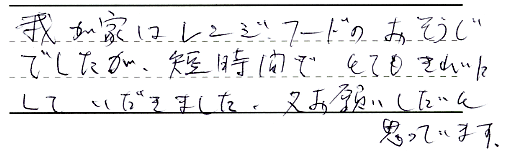 我が家はレンジフードのおそうじ
でしたが、短時間でとてもきれいに
していただきました。又お願いしたいと
思っています。